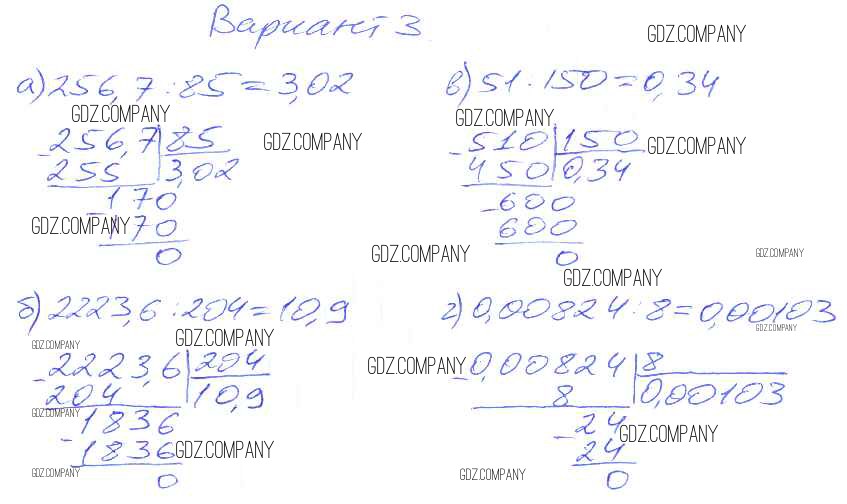 Вариант 3
GDZ.COMPANY
а) 256,7 : 85 = 3,02
GDZ.COMPANY
- 256,7 | 85
GDZ.COMPANY
255 | 3,02
- 170
GDZ.COMPANY
170
0
в) 51 : 150 = 0,34
GDZ.COMPANY
- 510 | 150
GDZ.COMPANY
450 | 0,34
- 600
600
0
GDZ.COMPANY
GDZ.COMPANY
GDZ.COMPANY
б) 2223,6 : 204 = 10,9
GDZ.COMPANY
GDZ.COMPANY
- 2223,6 | 204
204 | 10,9
GDZ.COMPANY
- 1836
1836
GDZ.COMPANY
GDZ.COMPANY
0
г) 0,00824 : 8 = 0,00103
GDZ.COMPANY
GDZ.COMPANY
- 0,00824 | 8
8 | 0,00103
- 24
GDZ.COMPANY
24
GDZ.COMPANY
0